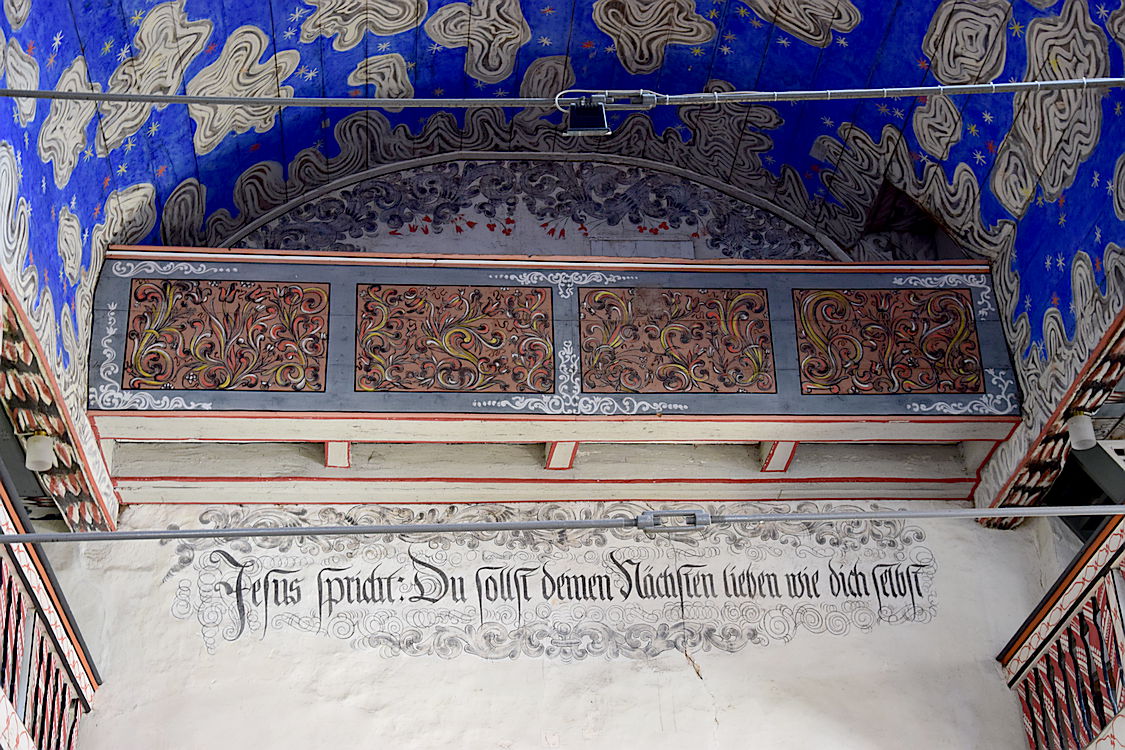 Jesus spricht: Du sollst deinen Nächsten lieben wie dich selbst